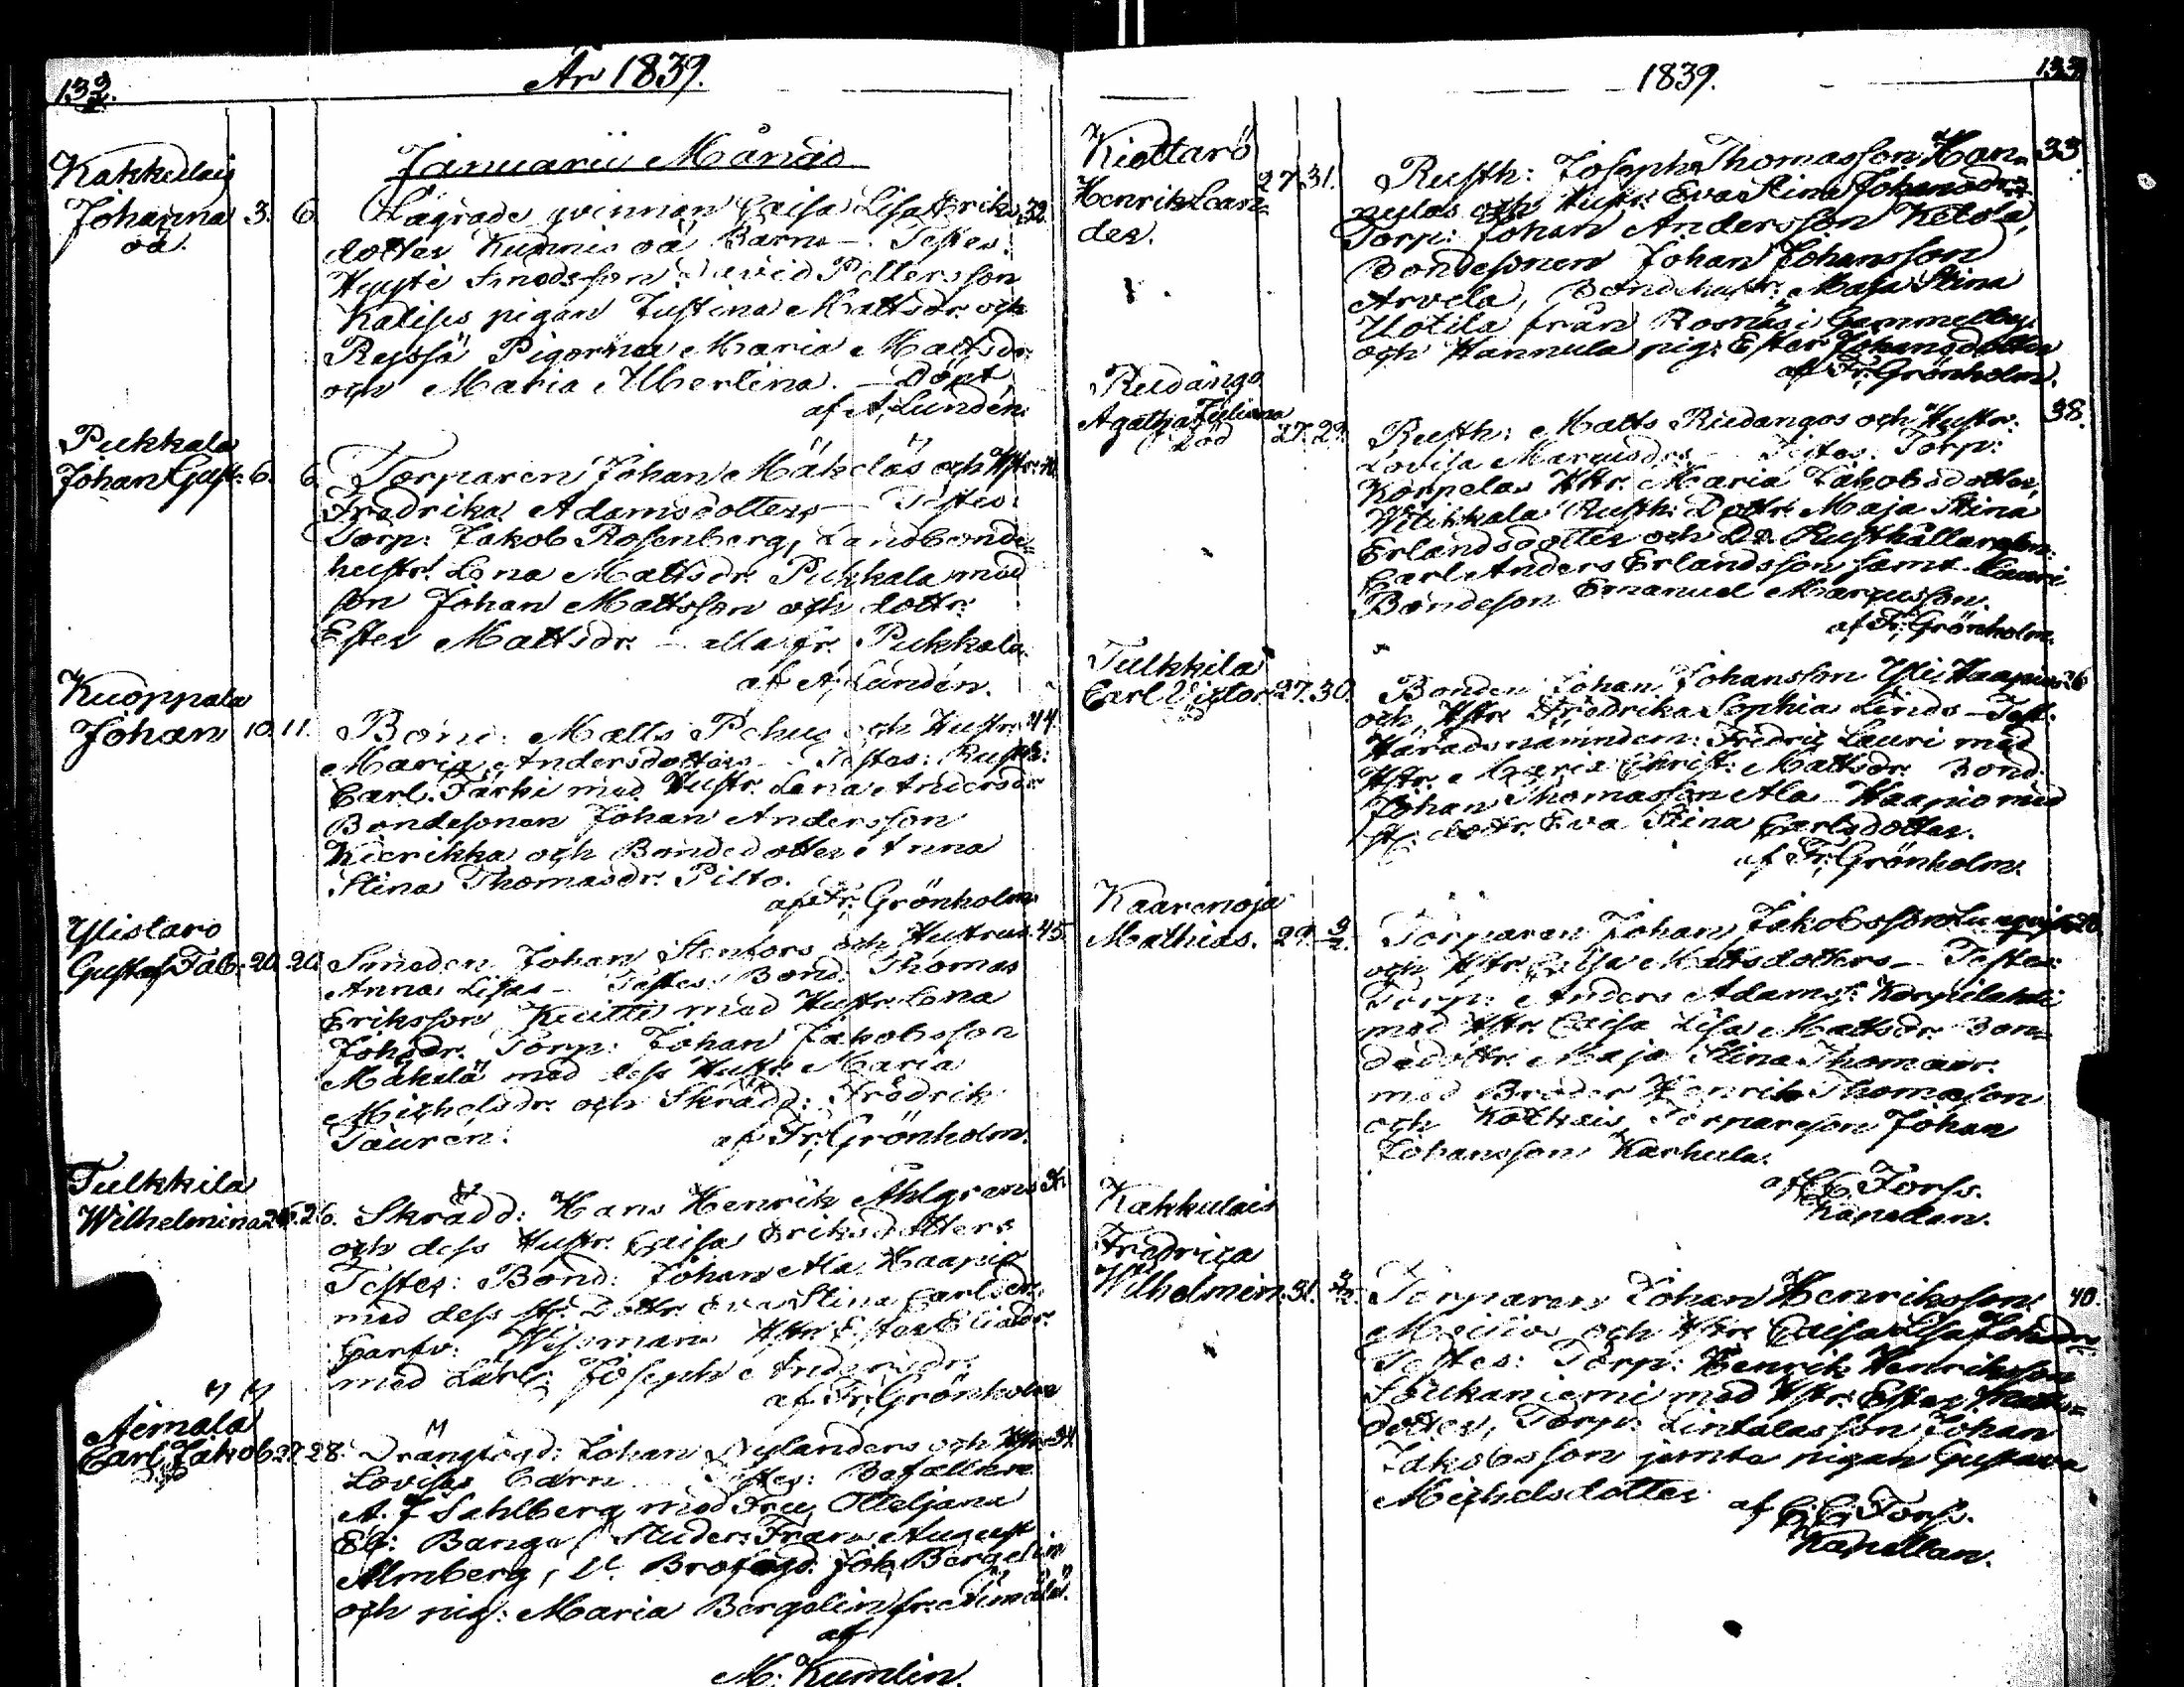 132.
År 1839.
Januarii Månad
Kakkulais
Johanna 3. 6. Lägrade qvinnan Caisa Lisa Eriks 32.
oä. dotter Kunnis oä Barn — Testes:
David Pettersson
Katises pigan Justina Mattsdr. och
Reyssä Pigorna Maria Mattsdr.
och Maria Albertina. — Döpt
af A. Lundén.
Pukkala
Johan Gust: 6. 6. Torparen Johan Mäkeläs och Hstr:
Fredrika Adamsdotters — Testes:
Torp: Jakob Rosenberg, Landbonde
hustr. Lena Mattsdr. Pukkala med
son Johan Mattsson och dottr:
Ester Mattsdr. — alla fr. Pukkala.
af A. Lundén.
Kuoppala
Johan 10. 11. Bond: Matts Pehus och Hustr: 44.
Maria Andersdotters — Testes: Rusth:
Carl Järki med Hustr. Lena Andersdr
Bondesonen Johan Andersson
Kierikka och Bondedotter Anna
Stina Thomasdr. Pilto.
af Fr. Grönholm
Ylistaro
Gustaf Tab. 20. 20. Smeden Johan Stenfors och Hustrus 45.
Anna Lisas — Testes: Bond: Thomas
Eriksson Kuitti med Hustr. Lena
Johsdr. Torp: Johan Jakobsson
Mäkelä med dess Hustr. Maria
Michelsdr. och Skrädd: Fredrik
Taurén. af Fr. Grönholm.
Tulkkila
Wilhelmina 26. 26. Skrädd: Hans Henrik Ahlgrens
och dess Hustr. Caisa Eriksdotters
Testes: Bond: Johan Ala Haapio
med dess st: Dottr. Eva Stina Carlsdr.
Garfv: Wissman Hstr Ester Eliædr.
med Lärl: Joseph
af Fr. Grönholm
Äimälä
Carl Jakob 27. 28. Johan Nylanders och Hstr. 24.
Lovisas barn Testes: Befallnm
A. J. Sahlberg med Fru Otteljana
El: Bange, Studer: Frans August
Almberg, Joh. Bergelin
och pig: Maria Bergelin fr. Äimälä.
af
M: Kumlin.
1839.
133
Kiettarö
Henrik Lean- 27. 31. Rusth: Joseph Thomasson Han- 33.
der. nulas och Hustr. Eva Stina Johansdr:
Torp: Johan Andersson Ketola,
Bondesonen Johan Johansson
Arvela, Bondehustr: Maja Stina
Uotila från Rosnäsi Gammelby
och Hannula pig: Ester Johansdotter
af Fr. Grönholm.
Rudango
Agatha Juliana 27. 29. Rusth: Matts Rudangos och Hustr: 38.
död Lovisa Marcusdrs — Testes: Torp:
Korpelas Hstr. Maria Jakobsdotter,
Witikkala Rusth: Dottr. Maja Stina
Erlandsdotter och Do. Rusthållareson:
Carl Anders Erlandsson samt Lauri
Bondeson Emanuel Marcusson.
af Fr. Grönholm.
Tulkkila
Carl Victor 27. 30. Bonden Johan Johansson Yli Haapios 26
och Hstr. Fredrika Sophia Linds — Test:
Häradsnämndem: Fredric Lauri med
Hstr. Maria Christ: Mattsdr. Bond:
Johan Thomasson Ala Haapio med
st: dottr. Eva Stina Carlsdotter.
af Fr. Grönholm.
Kaarenoja
Mathias. 29. 2/2. Torparen Johan Jakobsson
och Hstr. Mattsdotters — Testes:
Torp: Anders Adams: Korpilahti
med Hstr. Caisa Lisa Mattsdr. Bon-
dedottr. Maja Stina
med Broder Henrik Thomasson
och Torpareson Johan
Johansson Karhula.
af C. C. Forss.
Kapellan.
Kakkulais
Fredrica
Wilhelmin. 31. 3/2. Torparen Johan Henriksson 40.
och Hstr. Caisa Lisa Johsdr
Testes: Torp: Henrik Henriksson
Loukaniemi med Hstr. Ester
dotter, Torp: Lintalasson Johan
Jakobsson jemte pigan Gustava
Michelsdotter af C. C. Forss.
Kapellan.